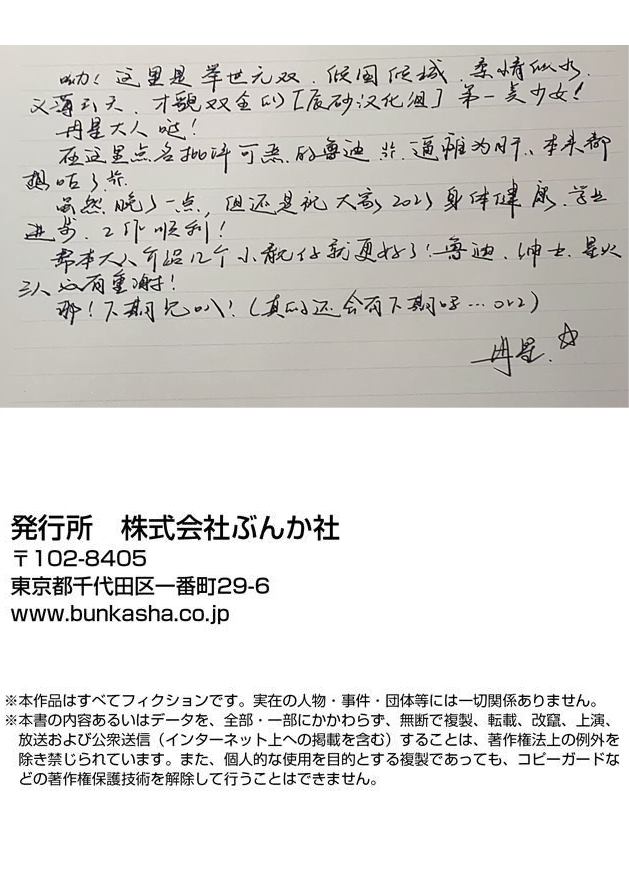 呦！这里是举世无双、倾国倾城、柔情似水、
义薄云天、才貌双全的[辰砂汉化组]第一美少女！
丹星大人哒！
在这里点名批评可恶的鲁迪
虽然晚了一点，但还是祝大家2023身体健康、学业
进步、工作顺利！
帮本大人介绍几个小靓仔就更好了！鲁迪、绅士、星火
三人必有重谢！
那！下期见叭！(真的还会有下期吗…orz)
丹星.☆
発行所　株式会社ぶんか社
〒102-8405
東京都千代田区一番町29-6
www.bunkasha.co.jp
※本作品はすべてフィクションです。実在の人物・事件・団体等には一切関係ありません。
※本書の内容あるいはデータを、全部・一部にかかわらず、無断で複製、転載、改竄、上演、
放送および公衆送信（インターネット上への掲載を含む）することは、著作権法上の例外を
除き禁じられています。また、個人的な使用を目的とする複製であっても、コピーガードな
どの著作権保護技術を解除して行うことはできません。